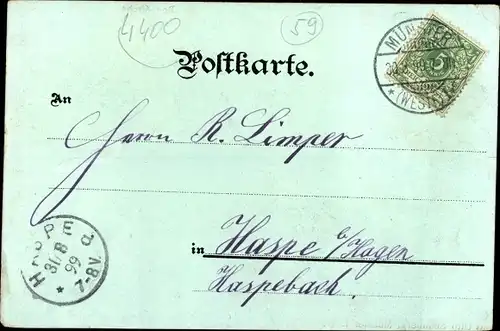 4400
59
Postkarte.
MÜNSTER
(WESTF.)
5
An
Herrn R. Limper
in Haspe b/Hagen
Haspebach.
HASPE d
31/8
99
7-8V.